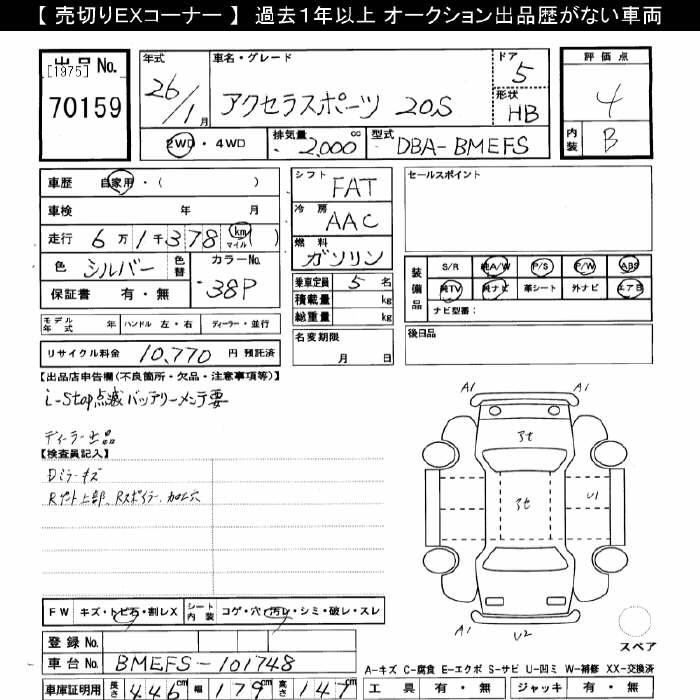 【 売切りEXコーナー 】 過去１年以上 オークション出品歴がない車両
出品 No.
[1975]
70159
年式
26/1月
車名・グレード
アクセラスポーツ 20S
ドア
5
形状
HB
評価点
4
内装
B
2WD・4WD
排気量
2,000 cc
型式
DBA-BMEFS
車歴 自家用・( )
車検 年 月
走行 6万1千378 km マイル ( )
色 シルバー 色替
カラーNo. 38P
保証書 有・無
シフト FAT
冷房 AAC
燃料 ガソリン
乗車定員 5 名
積載量 kg
総重量 kg
セールスポイント
装備品
S/R 純A/W P/S P/W ABS
純TV 純ナビ 革シート 外ナビ エアB
ナビ型番:
モデル年式 年 ハンドル 左・右 ディーラー・並行
名変期限
月 日
後日品
リサイクル料金 10,770 円 預託済
【出品店申告欄(不良箇所・欠品・注意事項等)】
i-stop点滅バッテリーメンテ要
ディーラー出品
【検査員記入】
Dミラーキズ
Rゲート上部、Rスポイラー加工穴
A1
A1
アセ
アセ
U1
A1
U2
スペア
FW キズ・トビ石・割レX
シート内装 コゲ・穴・汚レ・シミ・破レ・スレ
登録 No.
車台 No. BMEFS-101748
A-キズ C-腐食 E-エクボ S-サビ U-凹ミ W-補修 XX-交換済
車庫証明用 長さ 446cm 幅 179cm 高さ 147cm
工具 有・無 ジャッキ 有・無